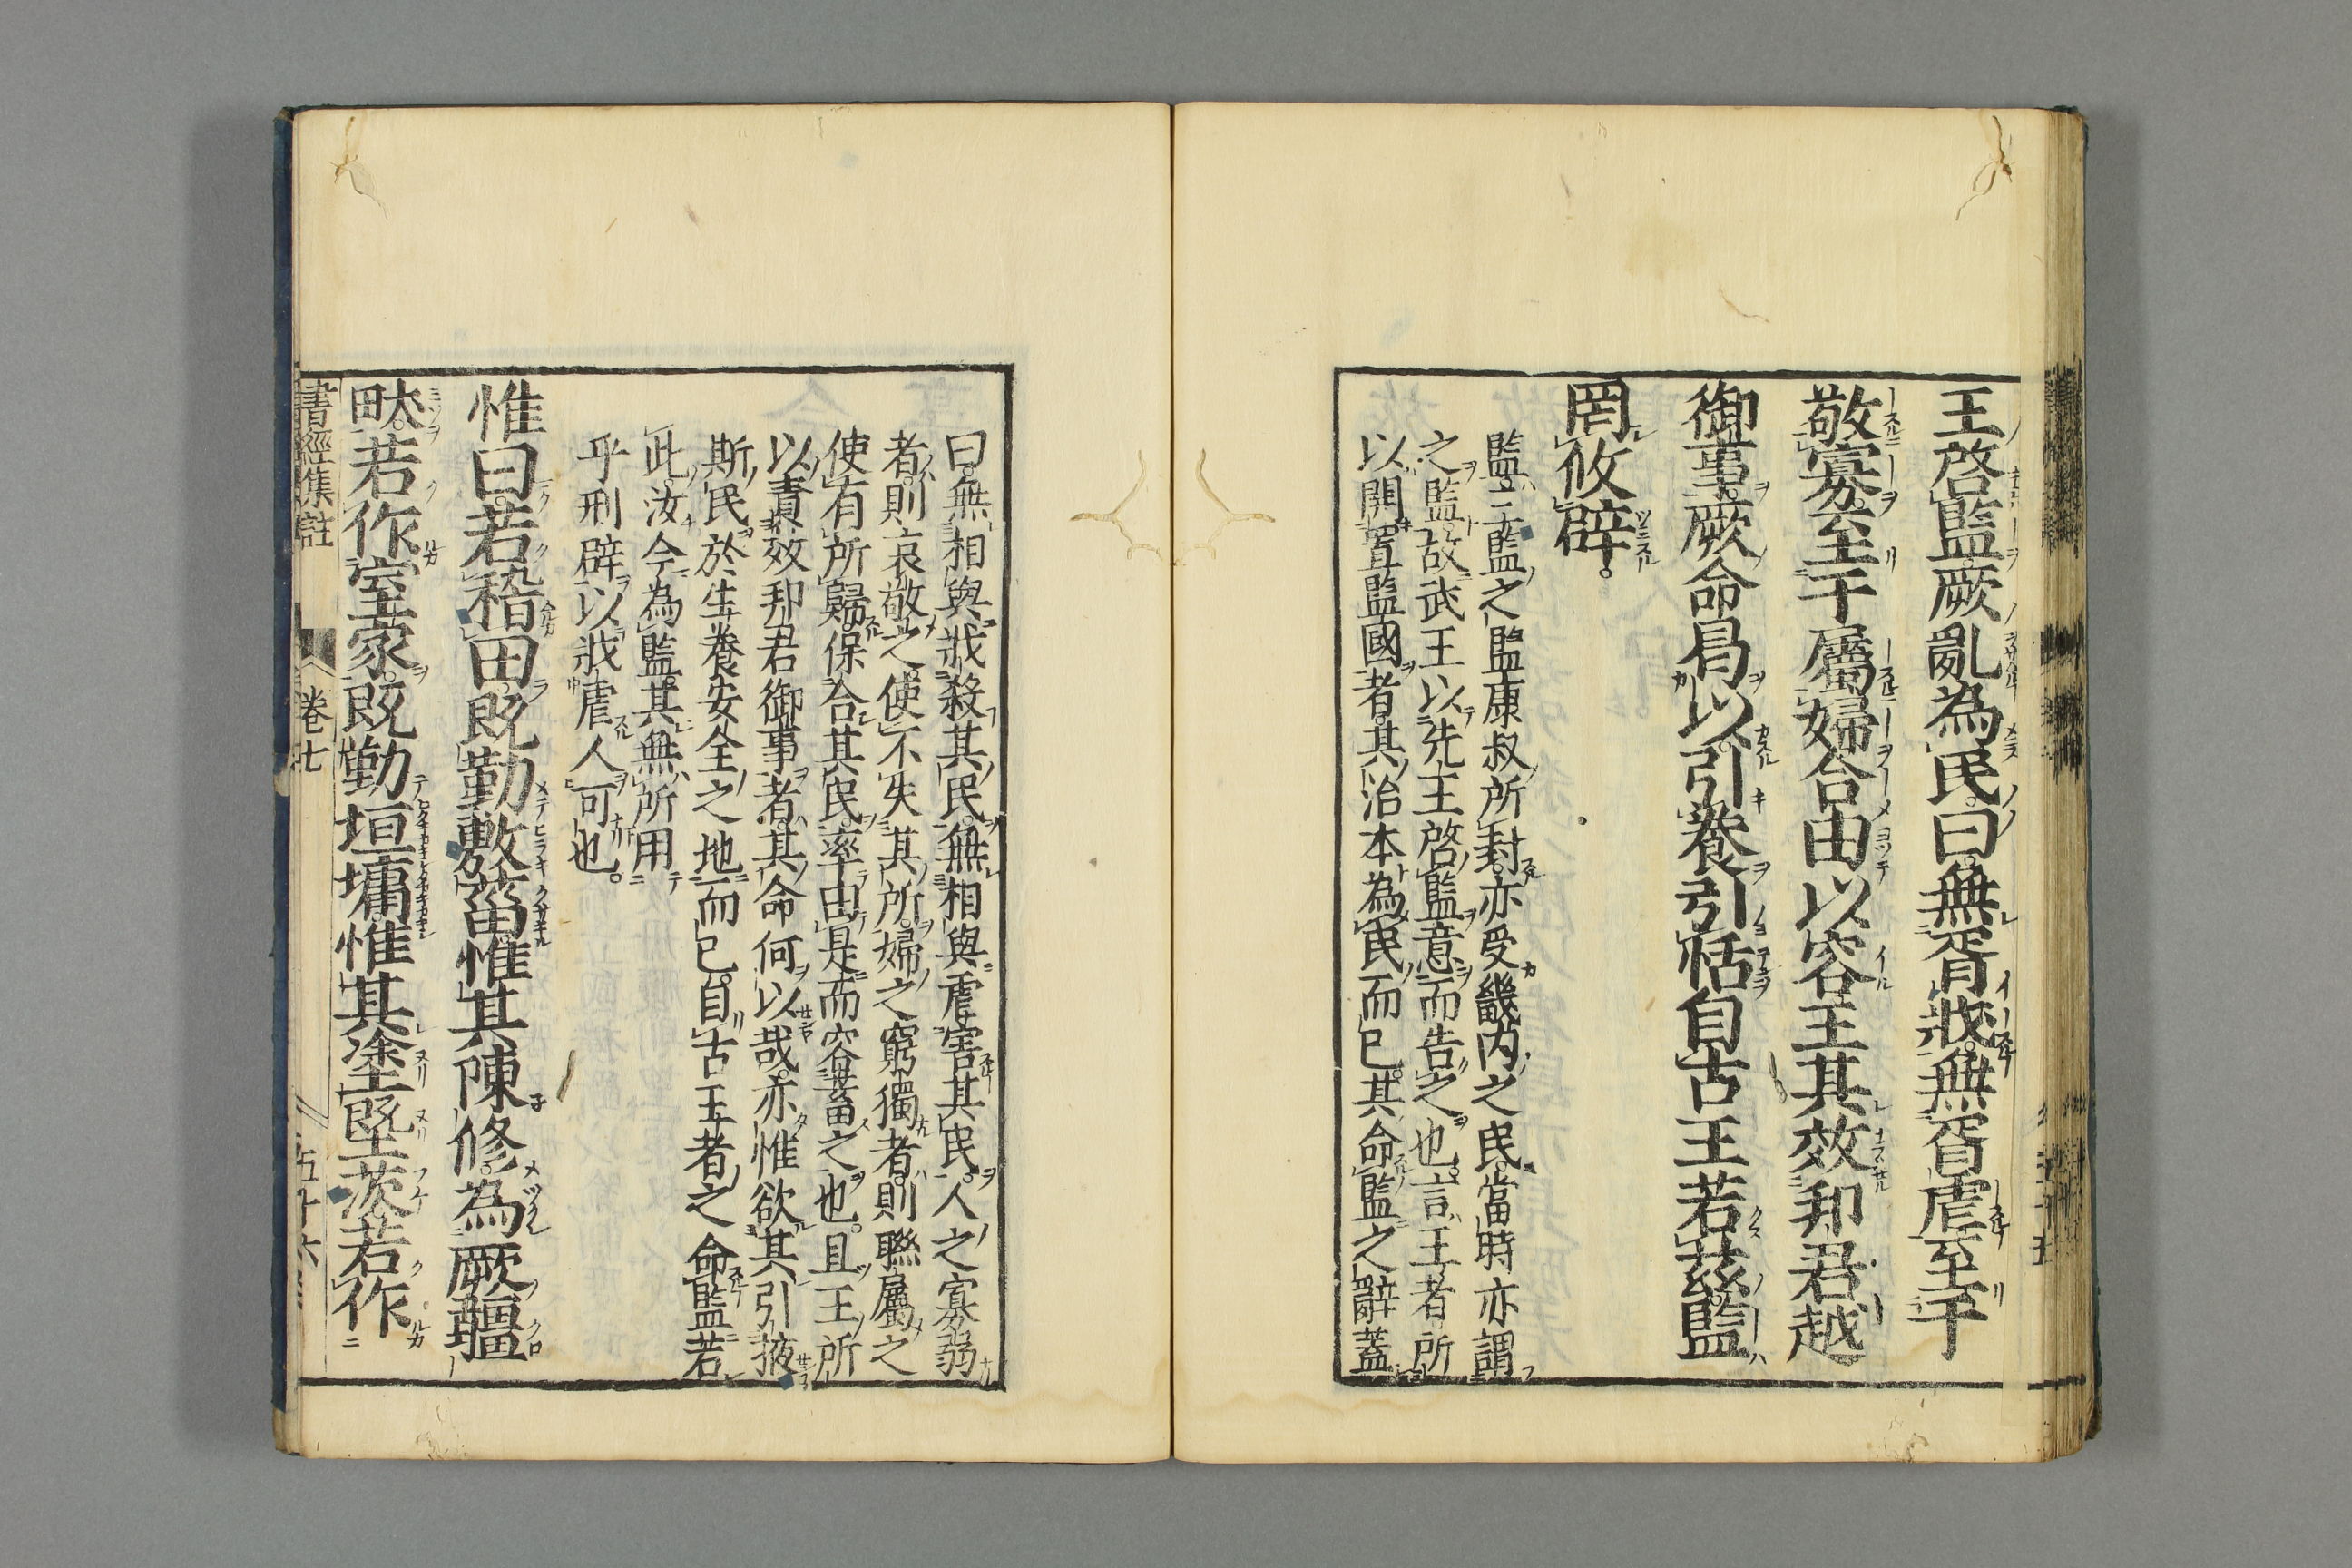 王啓監厥亂為民曰無胥戕無胥虐至于
敬寡至于屬婦合由以容王其效邦君越
御事厥命曷以引養引恬自古王若茲監
罔攸辟
監三監之監康叔所封亦受畿内之民當時亦謂
之監故武王以先王啓監意而告之也言王者所
以開置監國者其治本為民而已其命監之辭蓋
曰無相與戕殺其民無相與虐害其民人之寡弱
者則哀敬之使不失其所婦之窮獨者則聯屬之
使有所歸保合其民率由是而容畜之也且王所
以責效邦君御事者其命何以哉亦惟欲其引掖
斯民於生養安全之地而已自古王者之命監若
此汝今為監其無所用
乎刑辟以戕虐人可也
惟曰若稽田既勤敷菑惟其陳修為厥疆
畎若作室家既勤垣墉惟其塗塈茨若作
書經集註 卷七 五十六